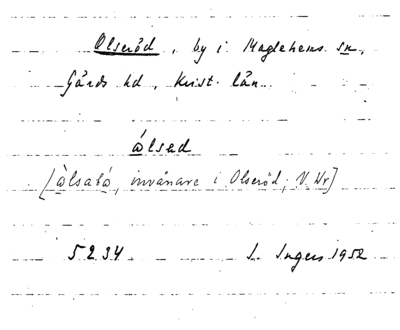 Olseröd, by i Maglehems sn,
Gärds hd, Krist. län.
álsed
[àlsabá, invånare i Olseröd, V. Wr]
5234 I. Ingers 1952